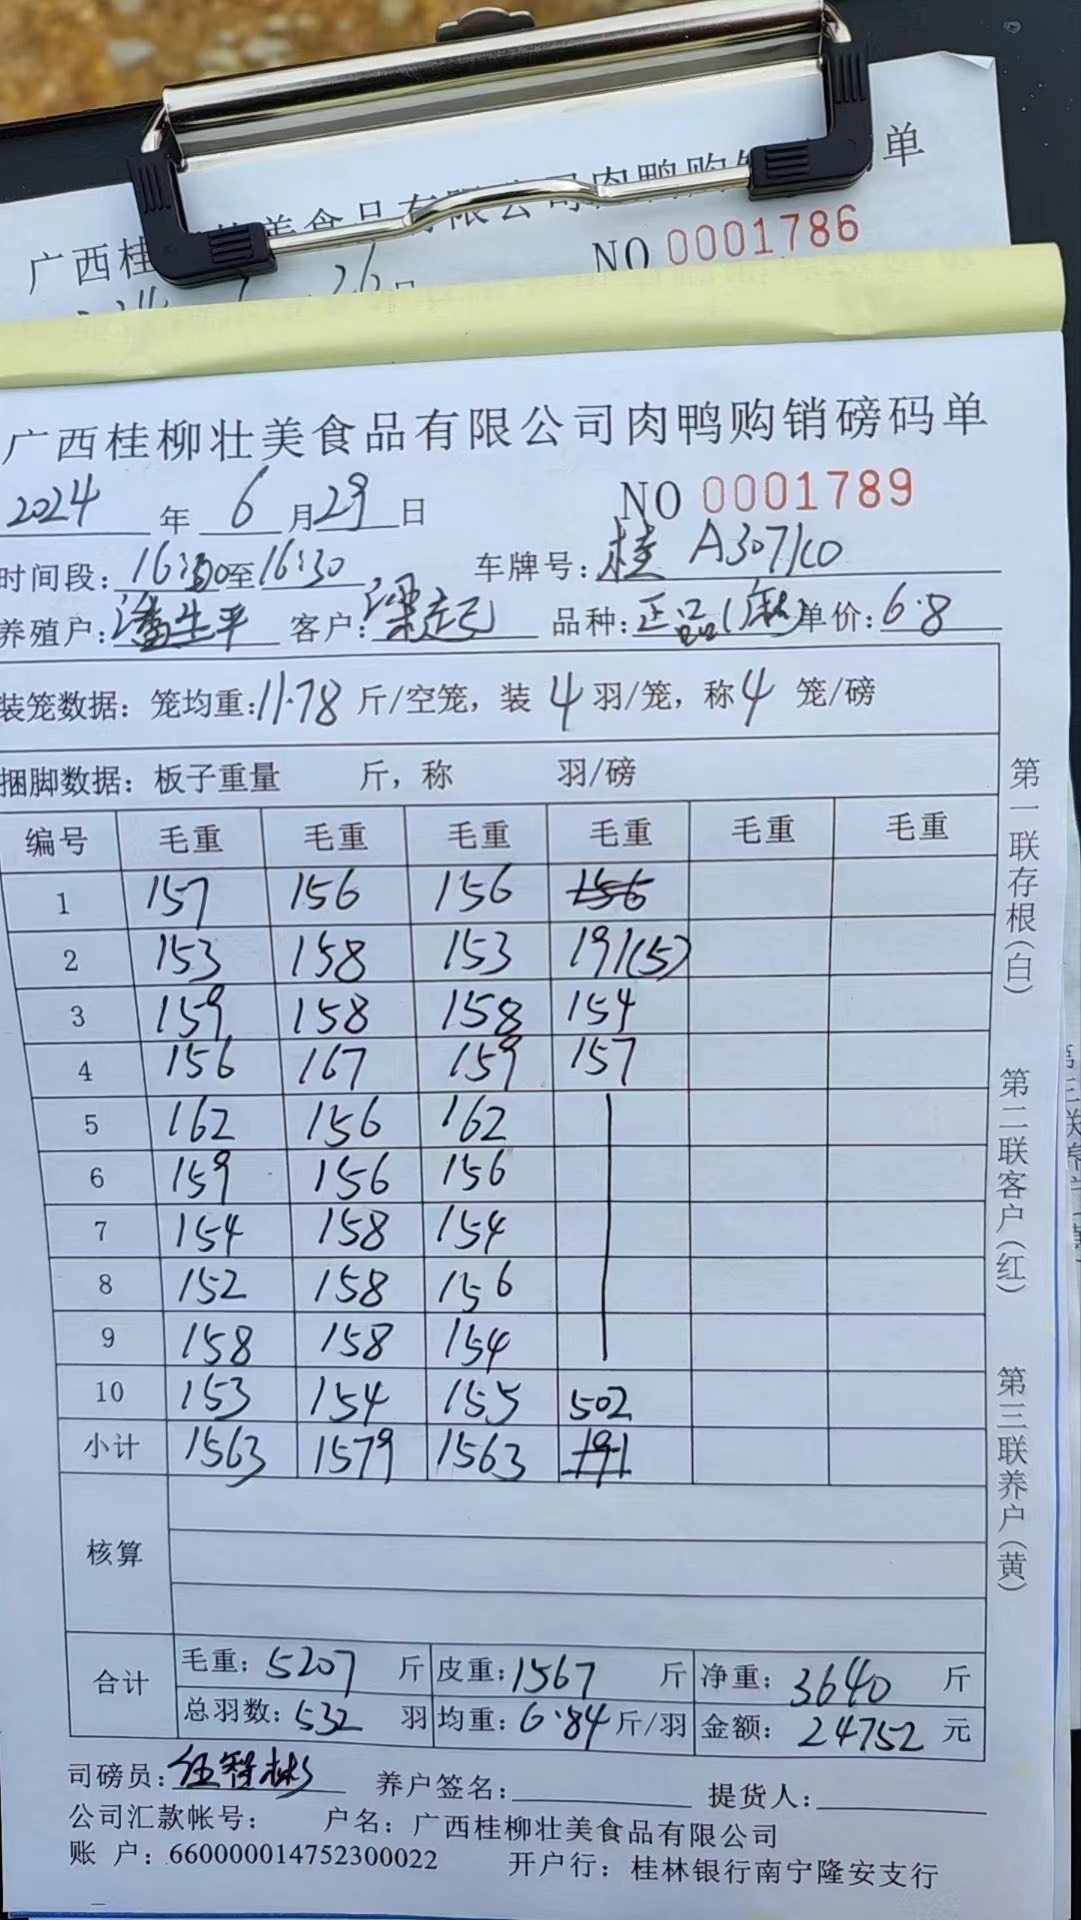 单
广西桂 美食品有限公司肉鸭购销
NO 0001786
26日
广西桂柳壮美食品有限公司肉鸭购销磅码单
2024年6月29日 NO 0001789
时间段:16:30至16:30 车牌号:桂 A307K0
养殖户:潘生平 客户:梁起 品种:正品 单价:6.8
装笼数据:笼均重:11.78斤/空笼,装4羽/笼,称4笼/磅
捆脚数据:板子重量 斤,称 羽/磅
编号 毛重 毛重 毛重 毛重 毛重 毛重
1 157 156 156 156
2 153 158 153 191(5)
3 159 158 158 154
4 156 167 159 157
5 162 156 162
6 159 156 156
7 154 158 154
8 152 158 156
9 158 158 154
10 153 154 155 502
小计 1563 1579 1563 191
核算
合计 毛重:5207斤 皮重:1567斤 净重:3640斤
总羽数:532羽 均重:6.84斤/羽 金额:24752元
司磅员:伍智彬 养户签名: 提货人:
公司汇款帐号: 户名:广西桂柳壮美食品有限公司
账 户:660000014752300022 开户行:桂林银行南宁隆安支行
第一联存根(白)
第二联客户(红)
第三联养户(黄)